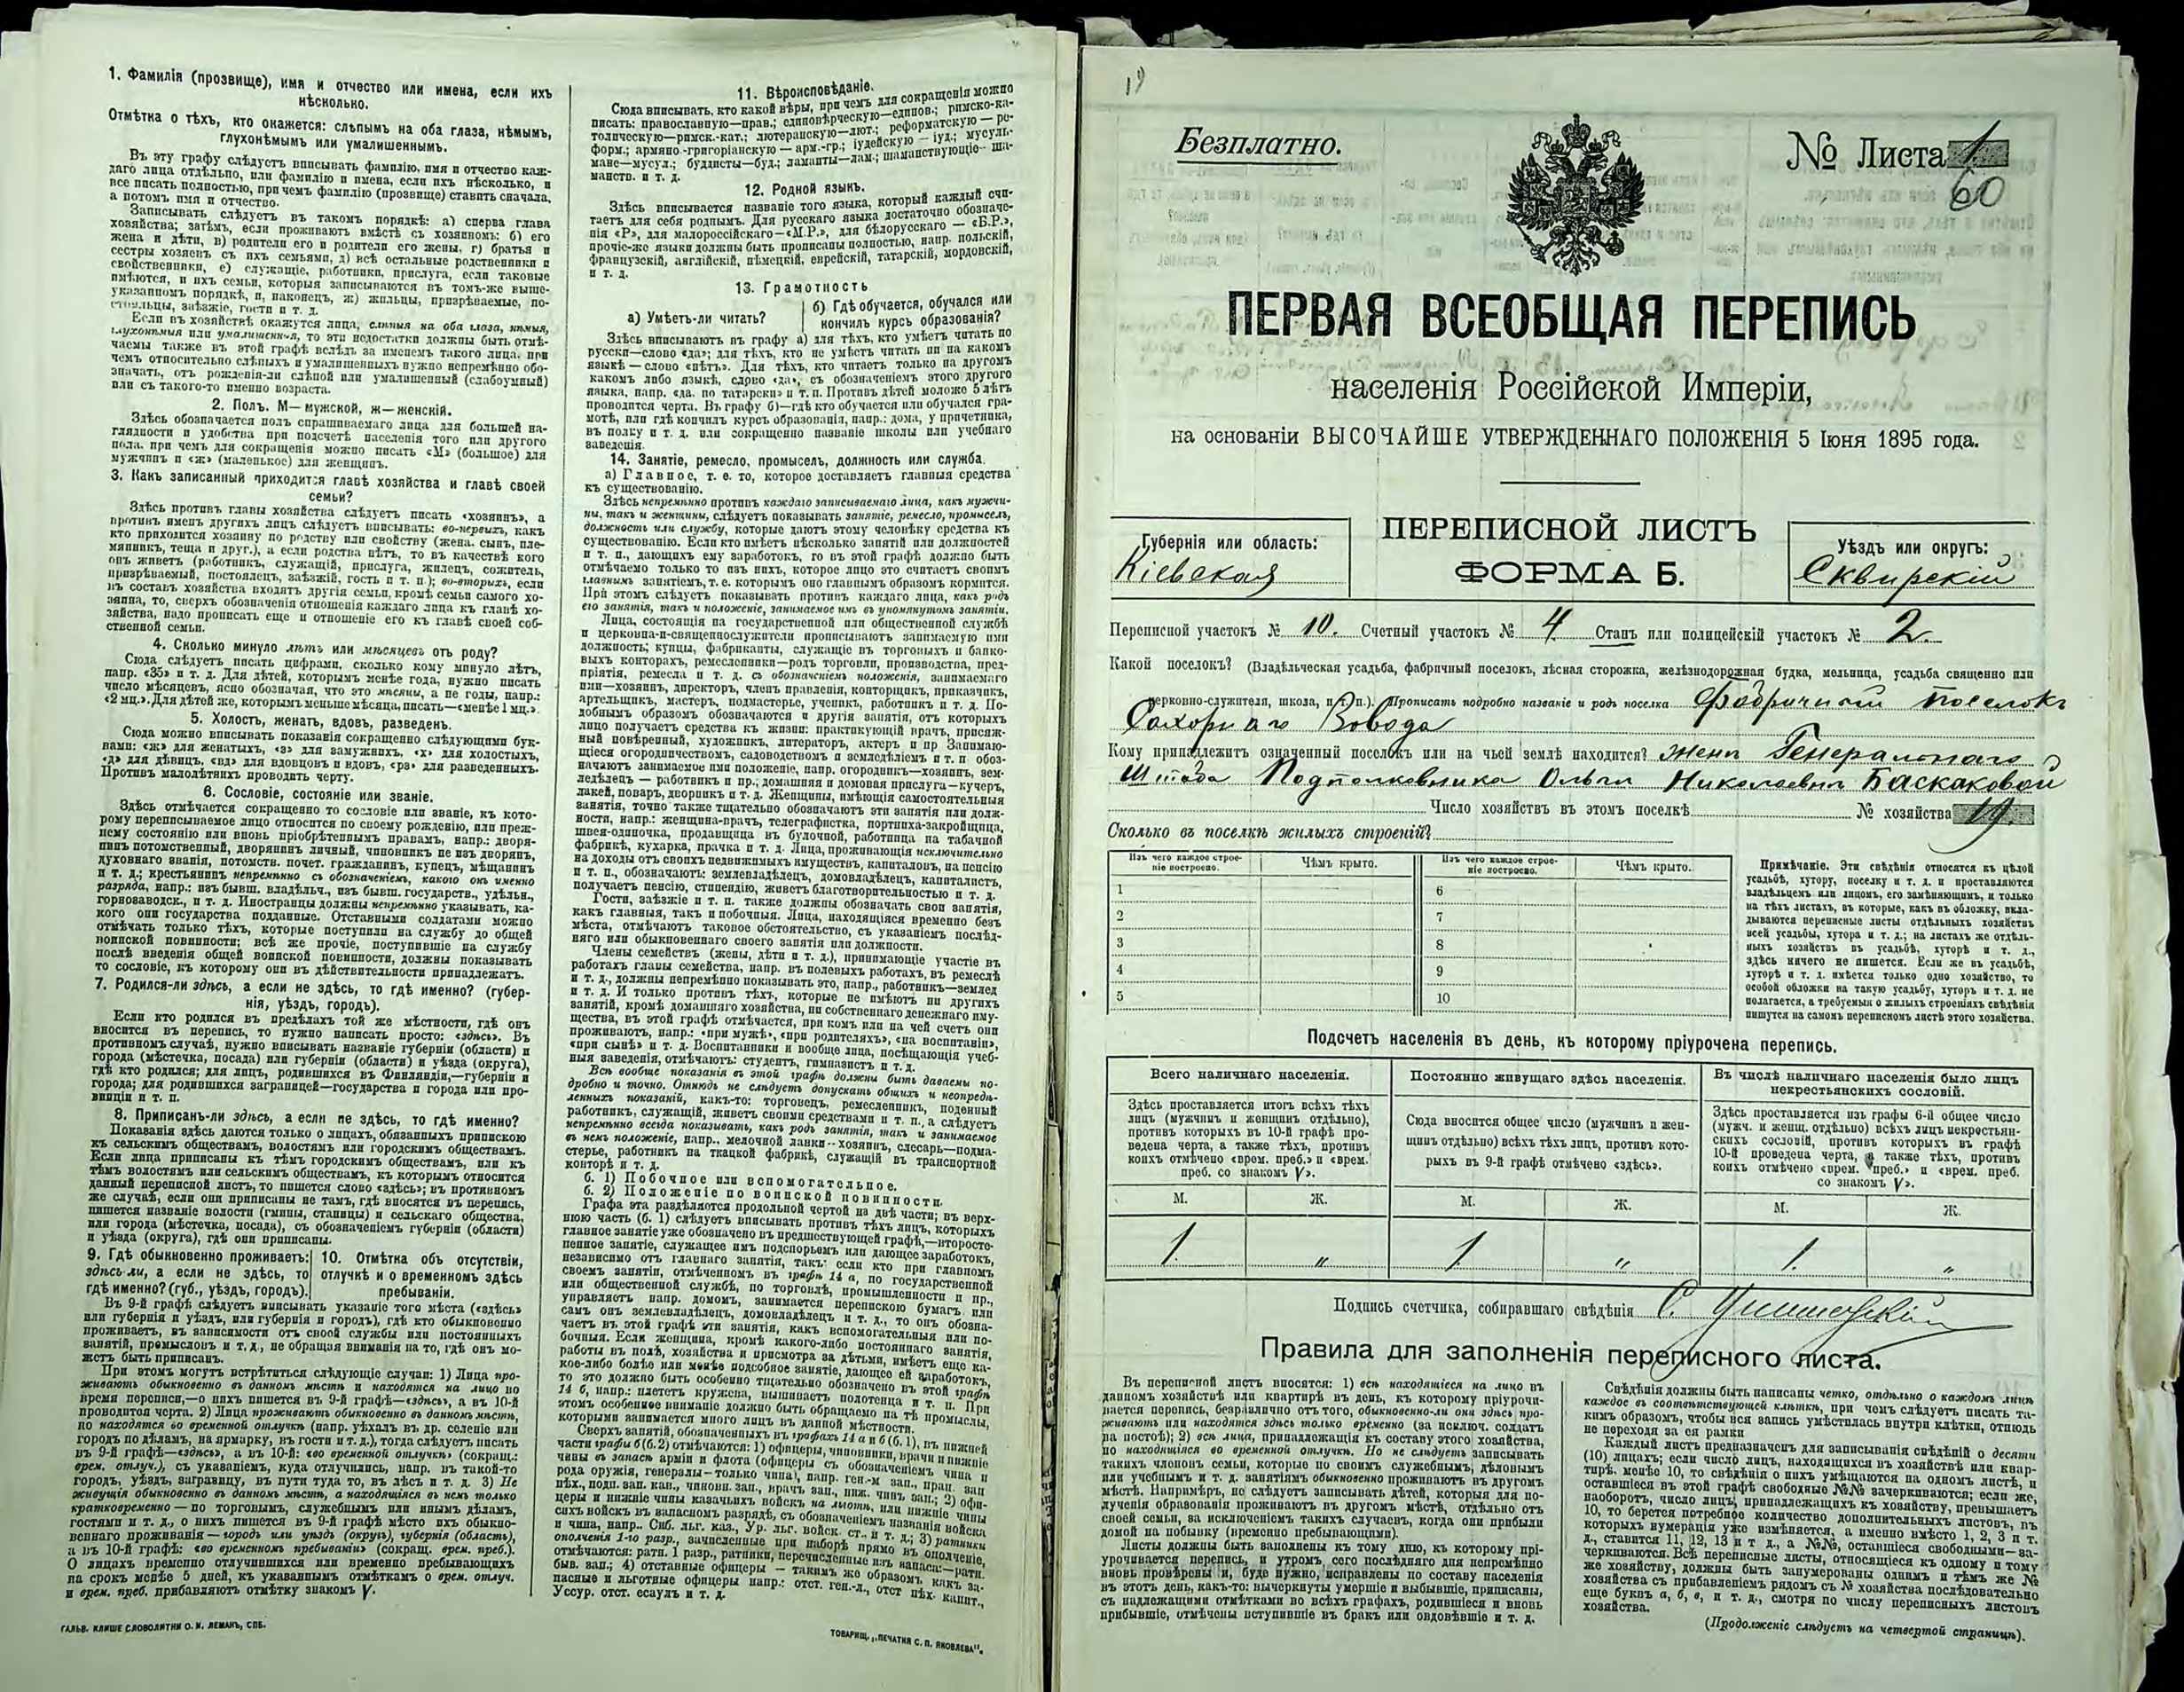 1. Фамилія (прозвище), имя и отчество или имена, если ихъ
нѣсколько.
Отмѣтка о тѣхъ, кто окажется: слѣпымъ на оба глаза, нѣмымъ,
глухонѣмымъ или умалишеннымъ.
Въ эту графу слѣдуетъ вписывать фамилію, имя и отчество каж-
даго лица отдѣльно, или фамилію и имена, если ихъ нѣсколько, и
все писать полностью, при чемъ фамилію (прозвище) ставить сначала,
а потомъ имя и отчество.
Записывать слѣдуетъ въ такомъ порядкѣ: а) сперва глава
хозяйства; затѣмъ, если проживаютъ вмѣстѣ съ хозяиномъ: б) его
жена и дѣти, в) родители его и родители его жены, г) братья и
сестры хозяевъ съ ихъ семьями, д) всѣ остальные родственники и
свойственники, е) служащіе, работники, прислуга, если таковые
имѣются, и ихъ семьи, которыя записываются въ томъ-же выше-
указанномъ порядкѣ, и, наконецъ, ж) жильцы, призрѣваемые, по-
стояльцы, заѣзжіе, гости и т. д.
Если въ хозяйствѣ окажутся лица, слѣпыя на оба глаза, нѣмыя,
глухонѣмыя или умалишенныя, то эти недостатки должны быть отмѣ-
чаемы также въ этой графѣ вслѣдъ за именемъ такого лица, при
чемъ относительно слѣпыхъ и умалишенныхъ нужно непремѣнно обо-
значать, отъ рожденія-ли слѣпой или умалишенный (слабоумный)
или съ такого-то именно возраста.
2. Полъ. М—мужской, ж—женскій.
Здѣсь обозначается полъ спрашиваемаго лица для большей на-
глядности и удобства при подсчетѣ населенія того или другого
пола, при чемъ для сокращенія можно писать «М» (большое) для
мужчинъ и «ж» (маленькое) для женщинъ.
3. Какъ записанный приходится главѣ хозяйства и главѣ своей
семьи?
Здѣсь противъ главы хозяйства слѣдуетъ писать «хозяинъ», а
противъ именъ другихъ лицъ слѣдуетъ вписывать: во-первыхъ, какъ
кто приходится хозяину по родству или свойству (жена, сынъ, пле-
мянникъ, теща и друг.), а если родства нѣтъ, то въ качествѣ кого
онъ живетъ (работникъ, служащій, прислуга, жилецъ, сожитель,
призрѣваемый, постоялецъ, заѣзжій, гость и т. п.); во-вторыхъ, если
въ составъ хозяйства входятъ другія семьи, кромѣ семьи самого хо-
зяина, то, сверхъ обозначенія отношенія каждаго лица къ главѣ хо-
зяйства, надо прописать еще и отношеніе его къ главѣ своей соб-
ственной семьи.
4. Сколько минуло лѣтъ или мѣсяцевъ отъ роду?
Сюда слѣдуетъ писать цифрами, сколько кому минуло лѣтъ,
напр. «35» и т. д. Для дѣтей, которымъ менѣе года, нужно писать
число мѣсяцевъ, ясно обозначая, что это мѣсяцы, а не годы, напр.:
«2 мц.». Для дѣтей же, которымъ меньше мѣсяца, писать—«менѣе 1 мц.».
5. Холостъ, женатъ, вдовъ, разведенъ.
Сюда можно вписывать показанія сокращенно слѣдующими бук-
вами: «ж» для женатыхъ, «з» для замужнихъ, «х» для холостыхъ,
«д» для дѣвицъ, «вд» для вдовцовъ и вдовъ, «рз» для разведенныхъ.
Противъ малолѣтнихъ проводить черту.
6. Сословіе, состояніе или званіе.
Здѣсь отмѣчается сокращенно то сословіе или званіе, къ кото-
рому переписываемое лицо относится по своему рожденію, или преж-
нему состоянію или вновь пріобрѣтеннымъ правамъ, напр.: дворя-
нинъ потомственный, дворянинъ личный, чиновникъ не изъ дворянъ,
духовнаго званія, потомств. почет. гражданинъ, купецъ, мѣщанинъ
и т. д.; крестьянинъ непремѣнно съ обозначеніемъ, какого онъ именно
разряда, напр.: изъ бывш. владѣльч., изъ бывш. государств., удѣльн.,
горнозаводск., и т. д. Иностранцы должны непремѣнно указывать, ка-
кого они государства подданные. Отставными солдатами можно
отмѣчать только тѣхъ, которые поступили на службу до общей
воинской повинности; всѣ же прочіе, поступившіе на службу
послѣ введенія общей воинской повинности, должны показывать
то сословіе, къ которому они въ дѣйствительности принадлежатъ.
7. Родился-ли здѣсь, а если не здѣсь, то гдѣ именно? (губер-
нія, уѣздъ, городъ).
Если кто родился въ предѣлахъ той же мѣстности, гдѣ онъ
вносится въ перепись, то нужно написать просто: «здѣсь». Въ
противномъ случаѣ, нужно вписывать названіе губерніи (области) и
города (мѣстечка, посада) или губерніи (области) и уѣзда (округа),
гдѣ кто родился; для лицъ, родившихся въ Финляндіи,—губерніи и
города; для родившихся заграницей—государства и города или про-
винціи и т. п.
8. Приписанъ-ли здѣсь, а если не здѣсь, то гдѣ именно?
Показанія здѣсь даются только о лицахъ, обязанныхъ припискою
къ сельскимъ обществамъ, волостямъ или городскимъ обществамъ.
Если лица приписаны къ тѣмъ городскимъ обществамъ, или къ
тѣмъ волостямъ или сельскимъ обществамъ, къ которымъ относится
данный переписной листъ, то пишется слово «здѣсь»; въ противномъ
же случаѣ, если они приписаны не тамъ, гдѣ вносятся въ перепись,
пишется названіе волости (гмины, станицы) и сельскаго общества,
или города (мѣстечка, посада), съ обозначеніемъ губерніи (области)
и уѣзда (округа), гдѣ они приписаны.
9. Гдѣ обыкновенно проживаетъ: здѣсь-ли, а если не здѣсь, то гдѣ именно? (губ., уѣздъ, городъ).
10. Отмѣтка объ отсутствіи, отлучкѣ и о временномъ здѣсь пребываніи.
Въ 9-й графѣ слѣдуетъ вписывать указаніе того мѣста («здѣсь»
или губернія и уѣздъ, или губернія и городъ), гдѣ кто обыкновенно
проживаетъ, въ зависимости отъ своей службы или постоянныхъ
занятій, промысловъ и т. д., не обращая вниманія на то, гдѣ онъ мо-
жетъ быть приписанъ.
При этомъ могутъ встрѣтиться слѣдующіе случаи: 1) Лица про-
живаютъ обыкновенно въ данномъ мѣстѣ и находятся на лицо во
время переписи,—о нихъ пишется въ 9-й графѣ—«здѣсь», а въ 10-й
проводится черта. 2) Лица проживаютъ обыкновенно въ данномъ мѣстѣ,
но находятся во временной отлучкѣ (напр. уѣхалъ въ др. селеніе или
городъ по дѣламъ, на ярмарку, въ гости и т. д.), тогда слѣдуетъ писать
въ 9-й графѣ—«здѣсь», а въ 10-й: «во временной отлучкѣ» (сокращ.:
врем. отлуч.), съ указаніемъ, куда отлучились, напр. въ такой-то
городъ, уѣздъ, заграницу, въ пути туда то, въ лѣсъ и т. д. 3) Не
живущія обыкновенно въ данномъ мѣстѣ, а находящіяся въ немъ только
кратковременно — по торговымъ, служебнымъ или инымъ дѣламъ,
гостями и т. д., о нихъ пишется въ 9-й графѣ мѣсто ихъ обыкно-
веннаго проживанія — городъ или уѣздъ (округъ), губернія (область),
а въ 10-й графѣ: «во временномъ пребываніи» (сокращ. врем. преб.).
О лицахъ временно отлучившихся или временно пребывающихъ
на срокъ менѣе 5 дней, къ указаннымъ отмѣткамъ о врем. отлуч.
и врем. преб. прибавляютъ отмѣтку знакомъ V.
ГАЛЬВ. КЛИШЕ СЛОВОЛИТНИ О. И. ЛЕМАНЪ, СПБ.
11. Вѣроисповѣданіе.
Сюда вписывать, кто какой вѣры, при чемъ для сокращенія можно
писать: православную—прав.; единовѣрческую—единов.; римско-ка-
толическую—римск.-кат.; лютеранскую—лют.; реформатскую — ре-
форм.; армяно-григоріанскую — арм.-гр.; іудейскую — іуд.; мусуль-
мане—мусул.; буддисты—буд.; ламаиты—лам.; шаманствующіе— ша-
манств. и т. д.
12. Родной языкъ.
Здѣсь вписывается названіе того языка, который каждый счи-
таетъ для себя роднымъ. Для русскаго языка достаточно обозначе-
нія «Р», для малороссійскаго—«М.Р.», для бѣлорусскаго — «Б.Р.»,
прочіе-же языки должны быть прописаны полностью, напр. польскій,
французскій, англійскій, нѣмецкій, еврейскій, татарскій, мордовскій,
и т. д.
13. Грамотность
а) Умѣетъ-ли читать?
б) Гдѣ обучается, обучался или кончилъ курсъ образованія?
Здѣсь вписываютъ въ графу а) для тѣхъ, кто умѣетъ читать по
русски—слово «да»; для тѣхъ, кто не умѣетъ читать ни на какомъ
языкѣ — слово «нѣтъ». Для тѣхъ, кто читаетъ только на другомъ
какомъ либо языкѣ, слово «да», съ обозначеніемъ этого другого
языка, напр. «да, по татарски» и т. п. Противъ дѣтей моложе 5 лѣтъ
проводится черта. Въ графу б)—гдѣ кто обучается или обучался гра-
мотѣ, или гдѣ кончилъ курсъ образованія, напр.: дома, у причетника,
въ полку и т. д. или сокращенно названіе школы или учебнаго
заведенія.
14. Занятіе, ремесло, промыселъ, должность или служба.
а) Главное, т. е. то, которое доставляетъ главныя средства
къ существованію.
Здѣсь непремѣнно противъ каждаго записываемаго лица, какъ мужчи-
ны, такъ и женщины, слѣдуетъ показывать занятіе, ремесло, промыселъ,
должность или службу, которые даютъ этому человѣку средства къ
существованію. Если кто имѣетъ нѣсколько занятій или должностей
и т. п., дающихъ ему заработокъ, то въ этой графѣ должно быть
отмѣчаемо только то изъ нихъ, которое лицо это считаетъ своимъ
главнымъ занятіемъ, т. е. которымъ оно главнымъ образомъ кормится.
При этомъ слѣдуетъ показывать противъ каждаго лица, какъ родъ
его занятія, такъ и положеніе, занимаемое имъ въ упомянутомъ занятіи.
Лица, состоящія на государственной или общественной службѣ
и церковно-и-священнослужители прописываютъ занимаемую ими
должность; купцы, фабриканты, служащіе въ торговыхъ и банко-
выхъ конторахъ, ремесленники—родъ торговли, производства, пред-
пріятія, ремесла и т. д. съ обозначеніемъ положенія, занимаемаго
ими—хозяинъ, директоръ, членъ правленія, конторщикъ, приказчикъ,
артельщикъ, мастеръ, подмастерье, ученикъ, работникъ и т. д. По-
добнымъ образомъ обозначаются и другія занятія, отъ которыхъ
лицо получаетъ средства къ жизни: практикующій врачъ, присяж-
ный повѣренный, художникъ, литераторъ, актеръ и пр Занимаю-
щіеся огородничествомъ, садоводствомъ и земледѣліемъ и т. п обоз-
начаютъ занимаемое ими положеніе, напр. огородникъ—хозяинъ, зем-
ледѣлецъ — работникъ и пр.; домашняя и домовая прислуга—кучеръ,
лакей, поваръ, дворникъ и т. д. Женщины, имѣющія самостоятельныя
занятія, точно также тщательно обозначаютъ эти занятія или долж-
ности, напр.: женщина-врачъ, телеграфистка, портниха-закройщица,
швея-одиночка, продавщица въ булочной, работница на табачной
фабрикѣ, кухарка, прачка и т. д. Лица, проживающія исключительно
на доходы отъ своихъ недвижимыхъ имуществъ, капиталовъ, на пенсію
и т. п., обозначаютъ: землевладѣлецъ, домовладѣлецъ, капиталистъ,
получаетъ пенсію, стипендію, живетъ благотворительностью и т. д.
Гости, заѣзжіе и т. п. также должны обозначать свои занятія,
какъ главныя, такъ и побочныя. Лица, находящіяся временно безъ
мѣста, отмѣчаютъ таковое обстоятельство, съ указаніемъ послѣд-
няго или обыкновеннаго своего занятія или должности.
Члены семействъ (жены, дѣти и т. д.), принимающіе участіе въ
работахъ главы семейства, напр. въ полевыхъ работахъ, въ ремеслѣ
и т. д., должны непремѣнно показывать это, напр., работникъ—землед
и т. д. И только противъ тѣхъ, которые не имѣютъ ни другихъ
занятій, кромѣ домашняго хозяйства, ни собственнаго денежнаго иму-
щества, въ этой графѣ отмѣчается, при комъ или на чей счетъ они
проживаютъ, напр.: «при мужѣ», «при родителяхъ», «на воспитаніи»,
«при сынѣ» и т. д. Воспитанники и вообще лица, посѣщающія учеб-
ныя заведенія, отмѣчаютъ: студентъ, гимназистъ и т. д.
Всѣ вообще показанія въ этой графѣ должны быть даваемы по-
дробно и точно. Отнюдь не слѣдуетъ допускать общихъ и неопредѣ-
ленныхъ показаній, какъ-то: торговецъ, ремесленникъ, поденный
работникъ, служащій, живетъ своими средствами и т. п., а слѣдуетъ
непремѣнно всегда показывать, какъ родъ занятія, такъ и занимаемое
въ немъ положеніе, напр., мелочной лавки--хозяинъ, слесарь—подма-
стерье, работникъ на ткацкой фабрикѣ, служащій въ транспортной
конторѣ и т. д.
б. 1) Побочное или вспомогательное.
б. 2) Положеніе по воинской повинности.
Графа эта раздѣляется продольной чертой на двѣ части; въ верх-
нюю часть (б. 1) слѣдуетъ вписывать противъ тѣхъ лицъ, которыхъ
главное занятіе уже обозначено въ предшествующей графѣ,—второсте-
пенное занятіе, служащее имъ подспорьемъ или дающее заработокъ,
независимо отъ главнаго занятія, такъ: если кто при главномъ
своемъ занятіи, отмѣченномъ въ графѣ 14 а, по государственной
или общественной службѣ, по торговлѣ, промышленности и пр.,
управляетъ напр. домомъ, занимается перепискою бумагъ или
самъ онъ землевладѣлецъ, домовладѣлецъ и т. д., то онъ обозна-
чаетъ въ этой графѣ эти занятія, какъ вспомогательныя или по-
бочныя. Если женщина, кромѣ какого-либо постояннаго занятія,
работы въ полѣ, хозяйства и присмотра за дѣтьми, имѣетъ еще ка-
кое-либо болѣе или менѣе подсобное занятіе, дающее ей заработокъ,
то это должно быть особенно тщательно обозначено въ этой графѣ
14 б, напр.: плететъ кружева, вышиваетъ полотенца и т. п. При
этомъ особенное вниманіе должно быть обращаемо на тѣ промыслы,
которыми занимается много лицъ въ данной мѣстности.
Сверхъ занятій, обозначенныхъ въ графахъ 14 а и б (б. 1), въ нижней
части графы б (б. 2) отмѣчаются: 1) офицеры, чиновники, врачи и нижніе
чины въ запасѣ арміи и флота (офицеры съ обозначеніемъ чина и
рода оружія, генералы—только чина), напр. ген.-м зап., прап. зап
пѣх., подп. зап. кав., чиновн. зап., врачъ зап., ниж. чинъ зап.; 2) офи-
церы и нижніе чины казачьихъ войскъ на льготѣ, или нижніе чины
сихъ войскъ въ запасномъ разрядѣ, съ обозначеніемъ названія войска
и чина, напр.. Сиб. льг. каз., Ур. льг. войск. ст., и т. д.; 3) ратники
ополченія 1-го разр., зачисленные при наборѣ прямо въ ополченіе,
отмѣчаются: ратн. 1 разр., ратники, перечисленные изъ запаса:—ратн.
быв. зап.; 4) отставные офицеры — такимъ же образомъ, какъ за-
пасные и льготные офицеры напр.: отст. ген.-л., отст пѣх. капит.,
Уссур. отст. есаулъ и т. д.
ТОВАРИЩ. „ПЕЧАТНЯ С. П. ЯКОВЛЕВА“.
19
Безплатно.
№ Листа 1.
60
ПЕРВАЯ ВСЕОБЩАЯ ПЕРЕПИСЬ
населенія Россійской Имперіи,
на основаніи ВЫСОЧАЙШЕ УТВЕРЖДЕННАГО ПОЛОЖЕНІЯ 5 Іюня 1895 года.
ПЕРЕПИСНОЙ ЛИСТЪ
ФОРМА Б.
Губернія или область:
Кіевская
Уѣздъ или округъ:
Сквирскій
Переписной участокъ № 10. Счетный участокъ № 4. Станъ или полицейскій участокъ № 2.
Какой поселокъ? (Владѣльческая усадьба, фабричный поселокъ, лѣсная сторожка, желѣзнодорожная будка, мельница, усадьба священно или
церковно-служителя, школа, и т. п.). Прописать подробно названіе и родъ поселка Фабричный поселокъ
Сахорнаго Завода
Кому принадлежитъ означенный поселокъ или на чьей землѣ находится? жены Генеральнаго
Штаба Подполковника Ольги Николаевны Баскаковой
Число хозяйствъ въ этомъ поселкѣ № хозяйства 19.
Сколько въ поселкѣ жилыхъ строеній?
Изъ чего каждое строе- ніе построено. Чѣмъ крыто. Изъ чего каждое строе- ніе построено. Чѣмъ крыто.
1 6
2 7
3 8
4 9
5 10
Примѣчаніе. Эти свѣдѣнія относятся къ цѣлой
усадьбѣ, хутору, поселку и т. д. и проставляются
владѣльцемъ или лицомъ, его замѣняющимъ, и только
на тѣхъ листахъ, въ которые, какъ въ обложку, вкла-
дываются переписные листы отдѣльныхъ хозяйствъ
всей усадьбы, хутора и т. д.; на листахъ же отдѣль-
ныхъ хозяйствъ въ усадьбѣ, хуторѣ и т. д.,
здѣсь ничего не пишется. Если же въ усадьбѣ,
хуторѣ и т. д. имѣется только одно хозяйство, то
особой обложки на такую усадьбу, хуторъ и т. д. не
полагается, а требуемыя о жилыхъ строеніяхъ свѣдѣнія
пишутся на самомъ переписномъ листѣ этого хозяйства.
Подсчетъ населенія въ день, къ которому пріурочена перепись.
Всего наличнаго населенія.
Здѣсь проставляется итогъ всѣхъ тѣхъ
лицъ (мужчинъ и женщинъ отдѣльно),
противъ которыхъ въ 10-й графѣ про-
ведена черта, а также тѣхъ, противъ
коихъ отмѣчено «врем. преб.» и «врем.
преб. со знакомъ V».
Постоянно живущаго здѣсь населенія.
Сюда вносится общее число (мужчинъ и жен-
щинъ отдѣльно) всѣхъ тѣхъ лицъ, противъ кото-
рыхъ въ 9-й графѣ отмѣчено «здѣсь».
Въ числѣ наличнаго населенія было лицъ
некрестьянскихъ сословій.
Здѣсь проставляется изъ графы 6-й общее число
(мужч. и женщ. отдѣльно) всѣхъ лицъ некрестьян-
скихъ сословій, противъ которыхъ въ графѣ
10-й проведена черта, а также тѣхъ, противъ
коихъ отмѣчено «врем. преб.» и «врем. преб.
со знакомъ V».
М. Ж. М. Ж. М. Ж.
1. " 1. " 1. "
Подпись счетчика, собиравшаго свѣдѣнія С.
Правила для заполненія переписного листа.
Въ переписной листъ вносятся: 1) всѣ находящіеся на лицо въ
данномъ хозяйствѣ или квартирѣ въ день, къ которому пріурочи-
вается перепись, безразлично отъ того, обыкновенно-ли они здѣсь про-
живаютъ или находятся здѣсь только временно (за исключ. солдатъ
на постоѣ); 2) всѣ лица, принадлежащія къ составу этого хозяйства,
но находящіяся во временной отлучкѣ. Но не слѣдуетъ записывать
такихъ членовъ семьи, которые по своимъ служебнымъ, дѣловымъ
или учебнымъ и т. д. занятіямъ обыкновенно проживаютъ въ другомъ
мѣстѣ. Напримѣръ, не слѣдуетъ записывать дѣтей, которыя для по-
лученія образованія проживаютъ въ другомъ мѣстѣ, отдѣльно отъ
своей семьи, за исключеніемъ такихъ случаевъ, когда они прибыли
домой на побывку (временно пребывающими).
Листы должны быть заполнены къ тому дню, къ которому прі-
урочивается перепись, и утромъ сего послѣдняго дня непремѣнно
вновь провѣрены и, буде нужно, исправлены по составу населенія
въ этотъ день, какъ-то: вычеркнуты умершіе и выбывшіе, приписаны,
съ надлежащими отмѣтками во всѣхъ графахъ, родившіеся и вновь
прибывшіе, отмѣчены вступившіе въ бракъ или овдовѣвшіе и т. д.
Свѣдѣнія должны быть написаны четко, отдѣльно о каждомъ лицѣ
каждое въ соотвѣтствующей клѣткѣ, при чемъ слѣдуетъ писать та-
кимъ образомъ, чтобы вся запись умѣстилась внутри клѣтки, отнюдь
не переходя за ея рамки
Каждый листъ предназначенъ для записыванія свѣдѣній о десяти
(10) лицахъ; если число лицъ, находящихся въ хозяйствѣ или квар-
тирѣ, менѣе 10, то свѣдѣнія о нихъ умѣщаются на одномъ листѣ, и
оставшіеся въ этой графѣ свободные №№ зачеркиваются; если же,
наоборотъ, число лицъ, принадлежащихъ къ хозяйству, превышаетъ
10, то берется потребное количество дополнительныхъ листовъ, въ
которыхъ нумерація уже измѣняется, а именно вмѣсто 1, 2, 3 и т.
д., ставится 11, 12, 13 и т д., а №№, оставшіеся свободными—за-
черкиваются. Всѣ переписные листы, относящіеся къ одному и тому
же хозяйству, должны быть занумерованы однимъ и тѣмъ же №
хозяйства съ прибавленіемъ рядомъ съ № хозяйства послѣдовательно
еще буквъ а, б, в, и т. д., смотря по числу переписныхъ листовъ
хозяйства.
(Продолженіе слѣдуетъ на четвертой страницѣ).